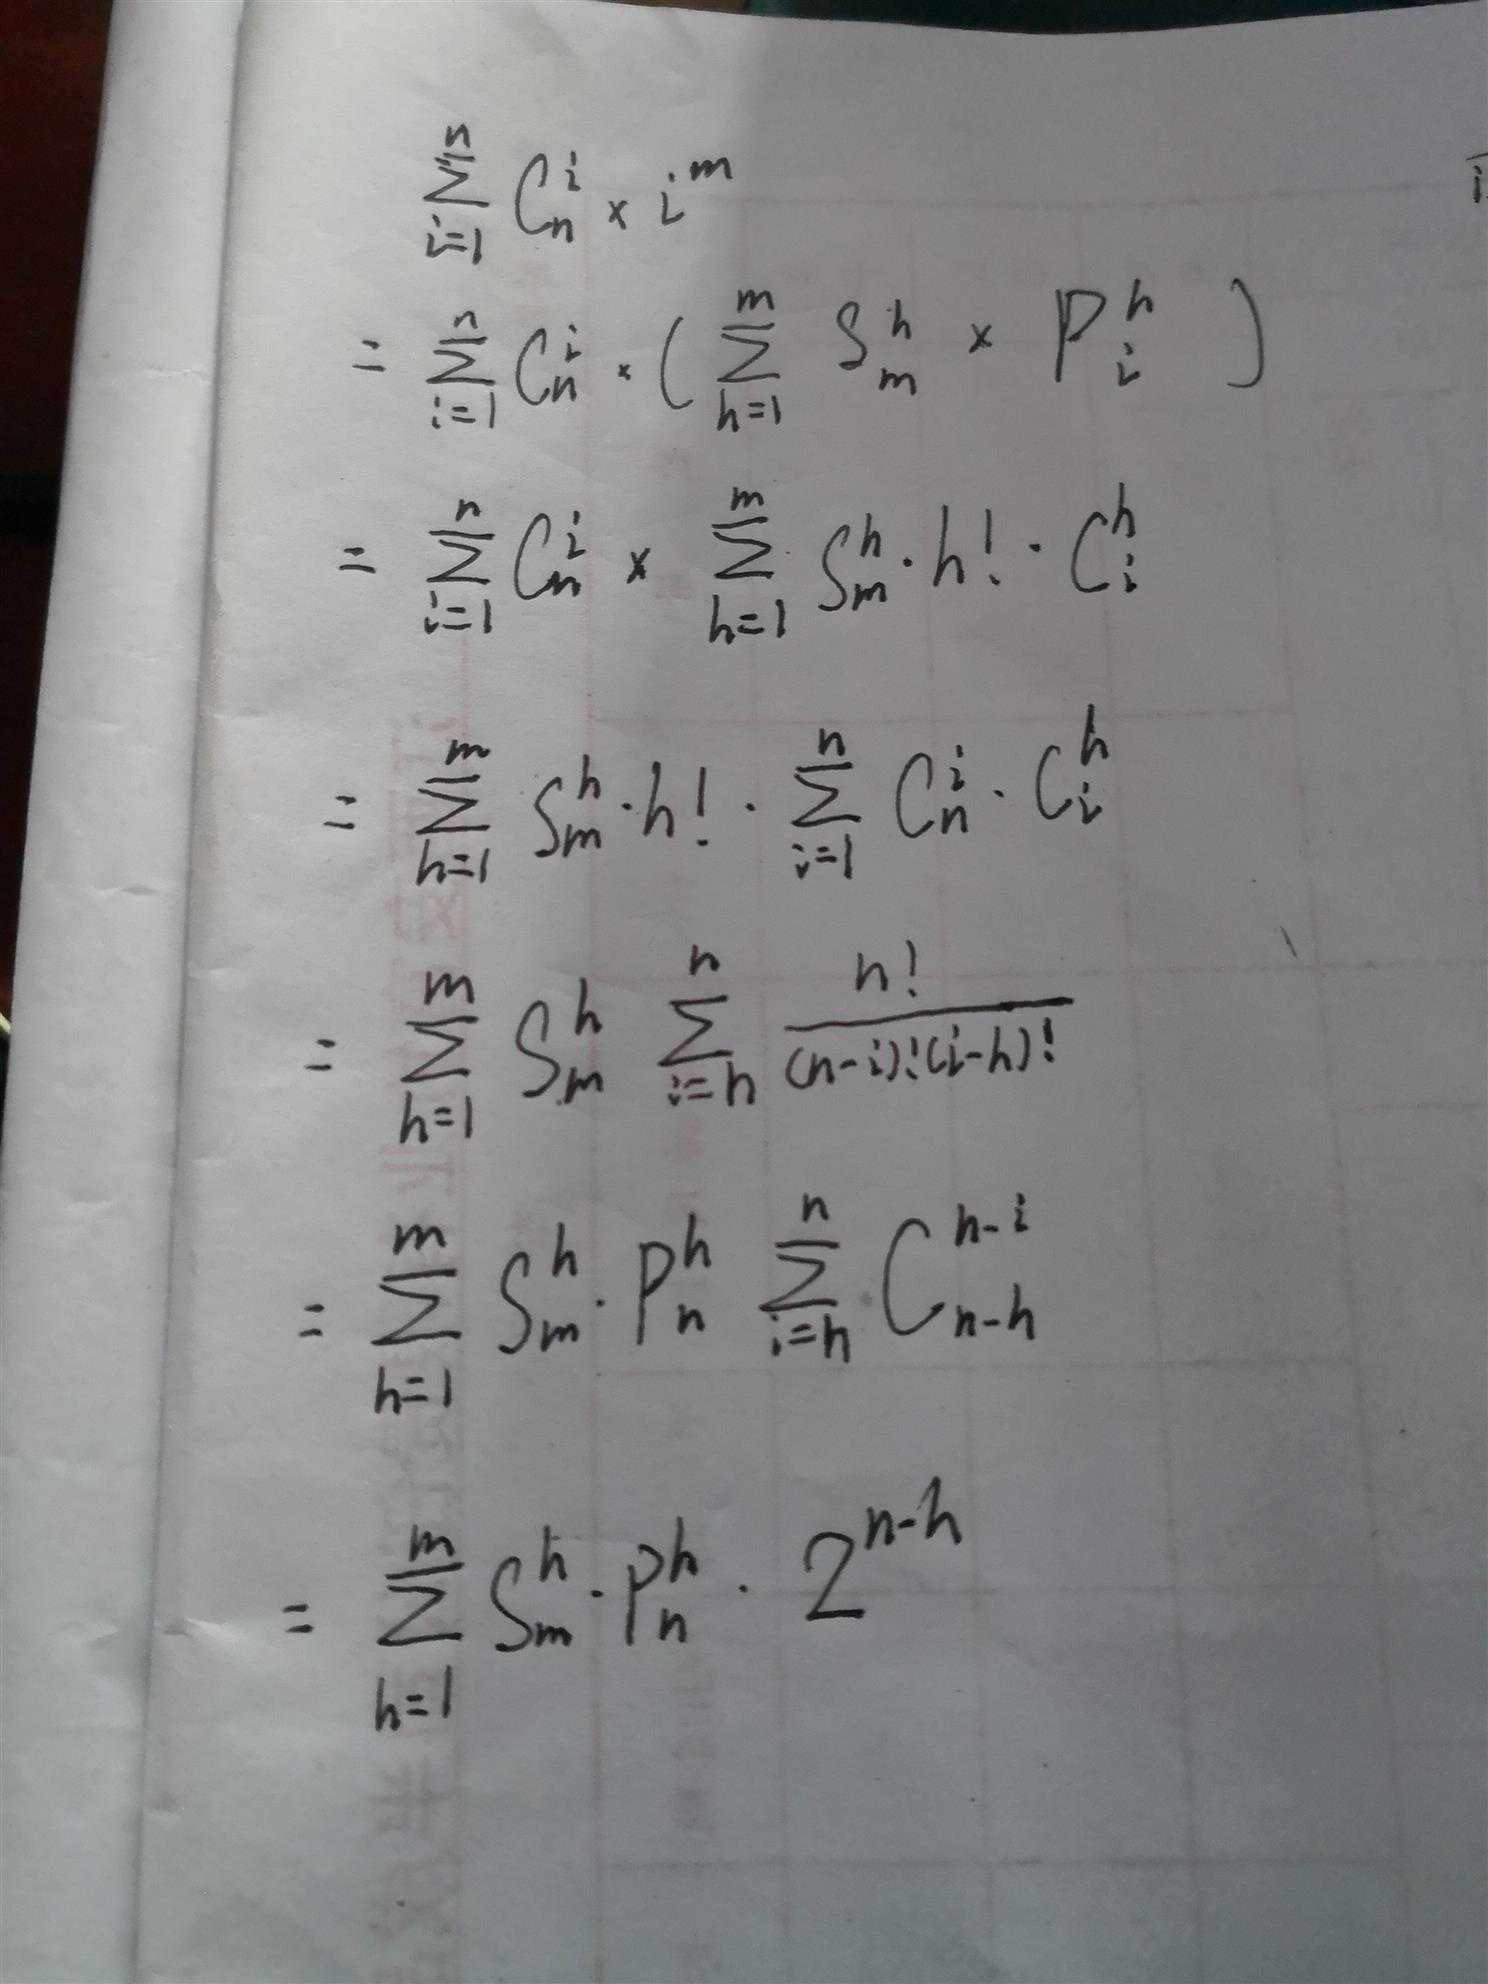 $\sum_{i=1}^{n} C_n^i \times i^m$
$= \sum_{i=1}^{n} C_n^i \cdot ( \sum_{h=1}^{m} S_m^h \times P_i^h )$
$= \sum_{i=1}^{n} C_n^i \times \sum_{h=1}^{m} S_m^h \cdot h! \cdot C_i^h$
$= \sum_{h=1}^{m} S_m^h \cdot h! \cdot \sum_{i=1}^{n} C_n^i \cdot C_i^h$
$= \sum_{h=1}^{m} S_m^h \sum_{i=h}^{n} \frac{n!}{(n-i)!(i-h)!}$
$= \sum_{h=1}^{m} S_m^h \cdot P_n^h \sum_{i=h}^{n} C_{n-h}^{n-i}$
$= \sum_{h=1}^{m} S_m^h \cdot P_n^h \cdot 2^{n-h}$